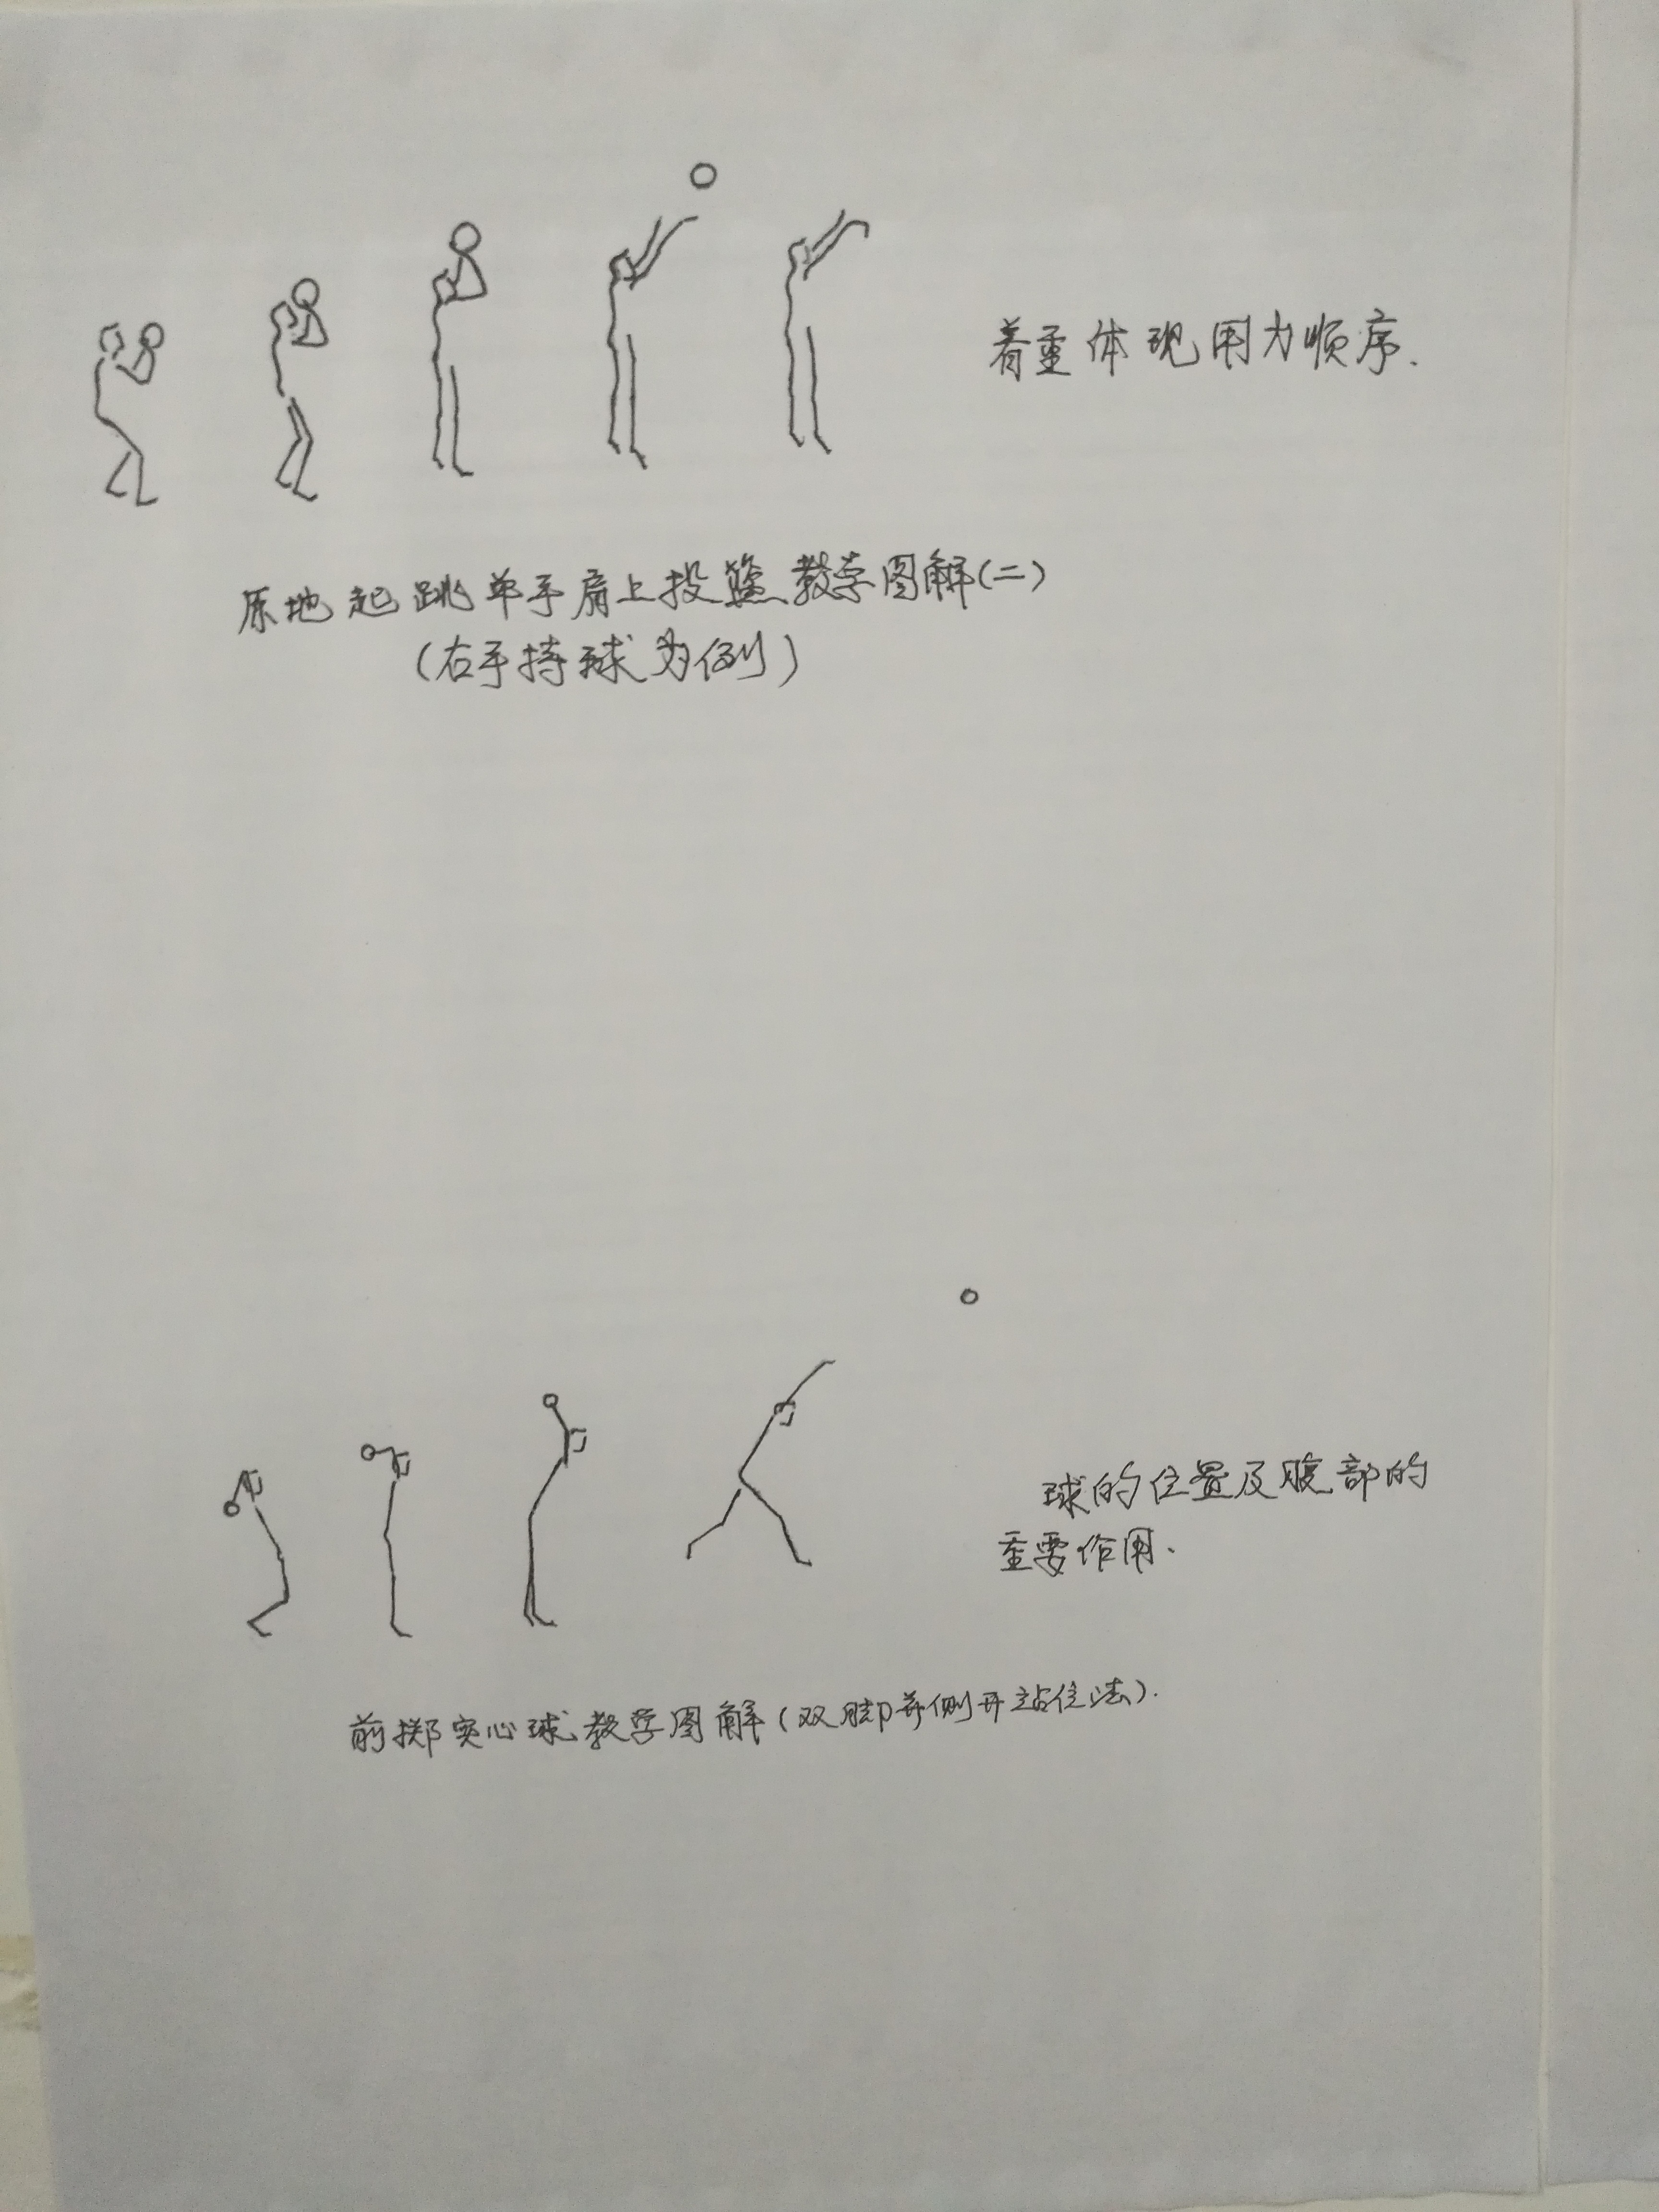 着重体现用力顺序.
原地起跳单手肩上投篮教学图解(二)
(右手持球为例)
球的位置及腹部的
重要作用.
前掷实心球教学图解(双脚并侧开站位法).